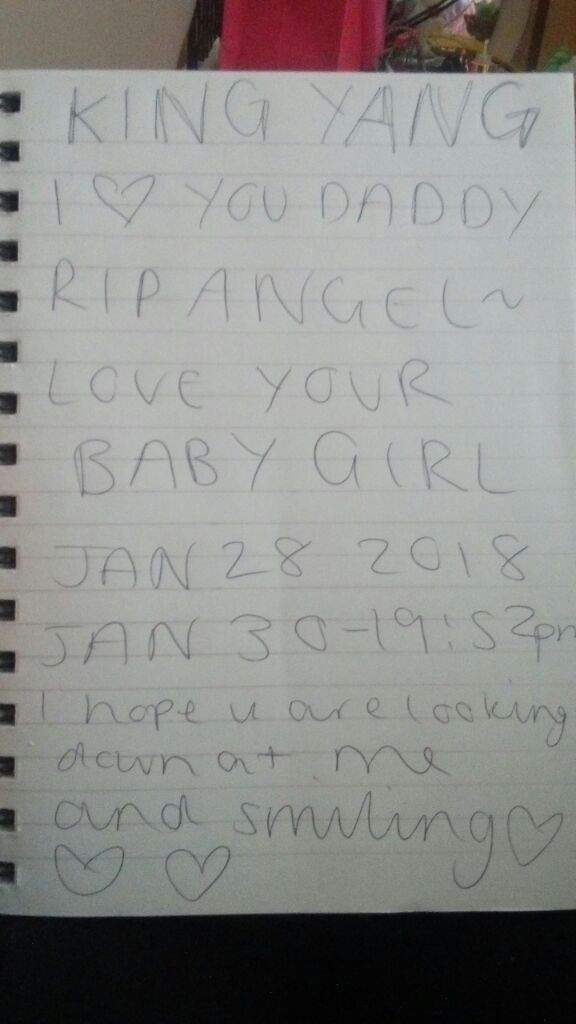 KING YANG
I ♡ YOU DADDY
RIP ANGEL~
LOVE YOUR
BABY GIRL
JAN 28 2018
JAN 30-19:52pm
I hope u are looking
down at me
and smiling ♡
♡ ♡